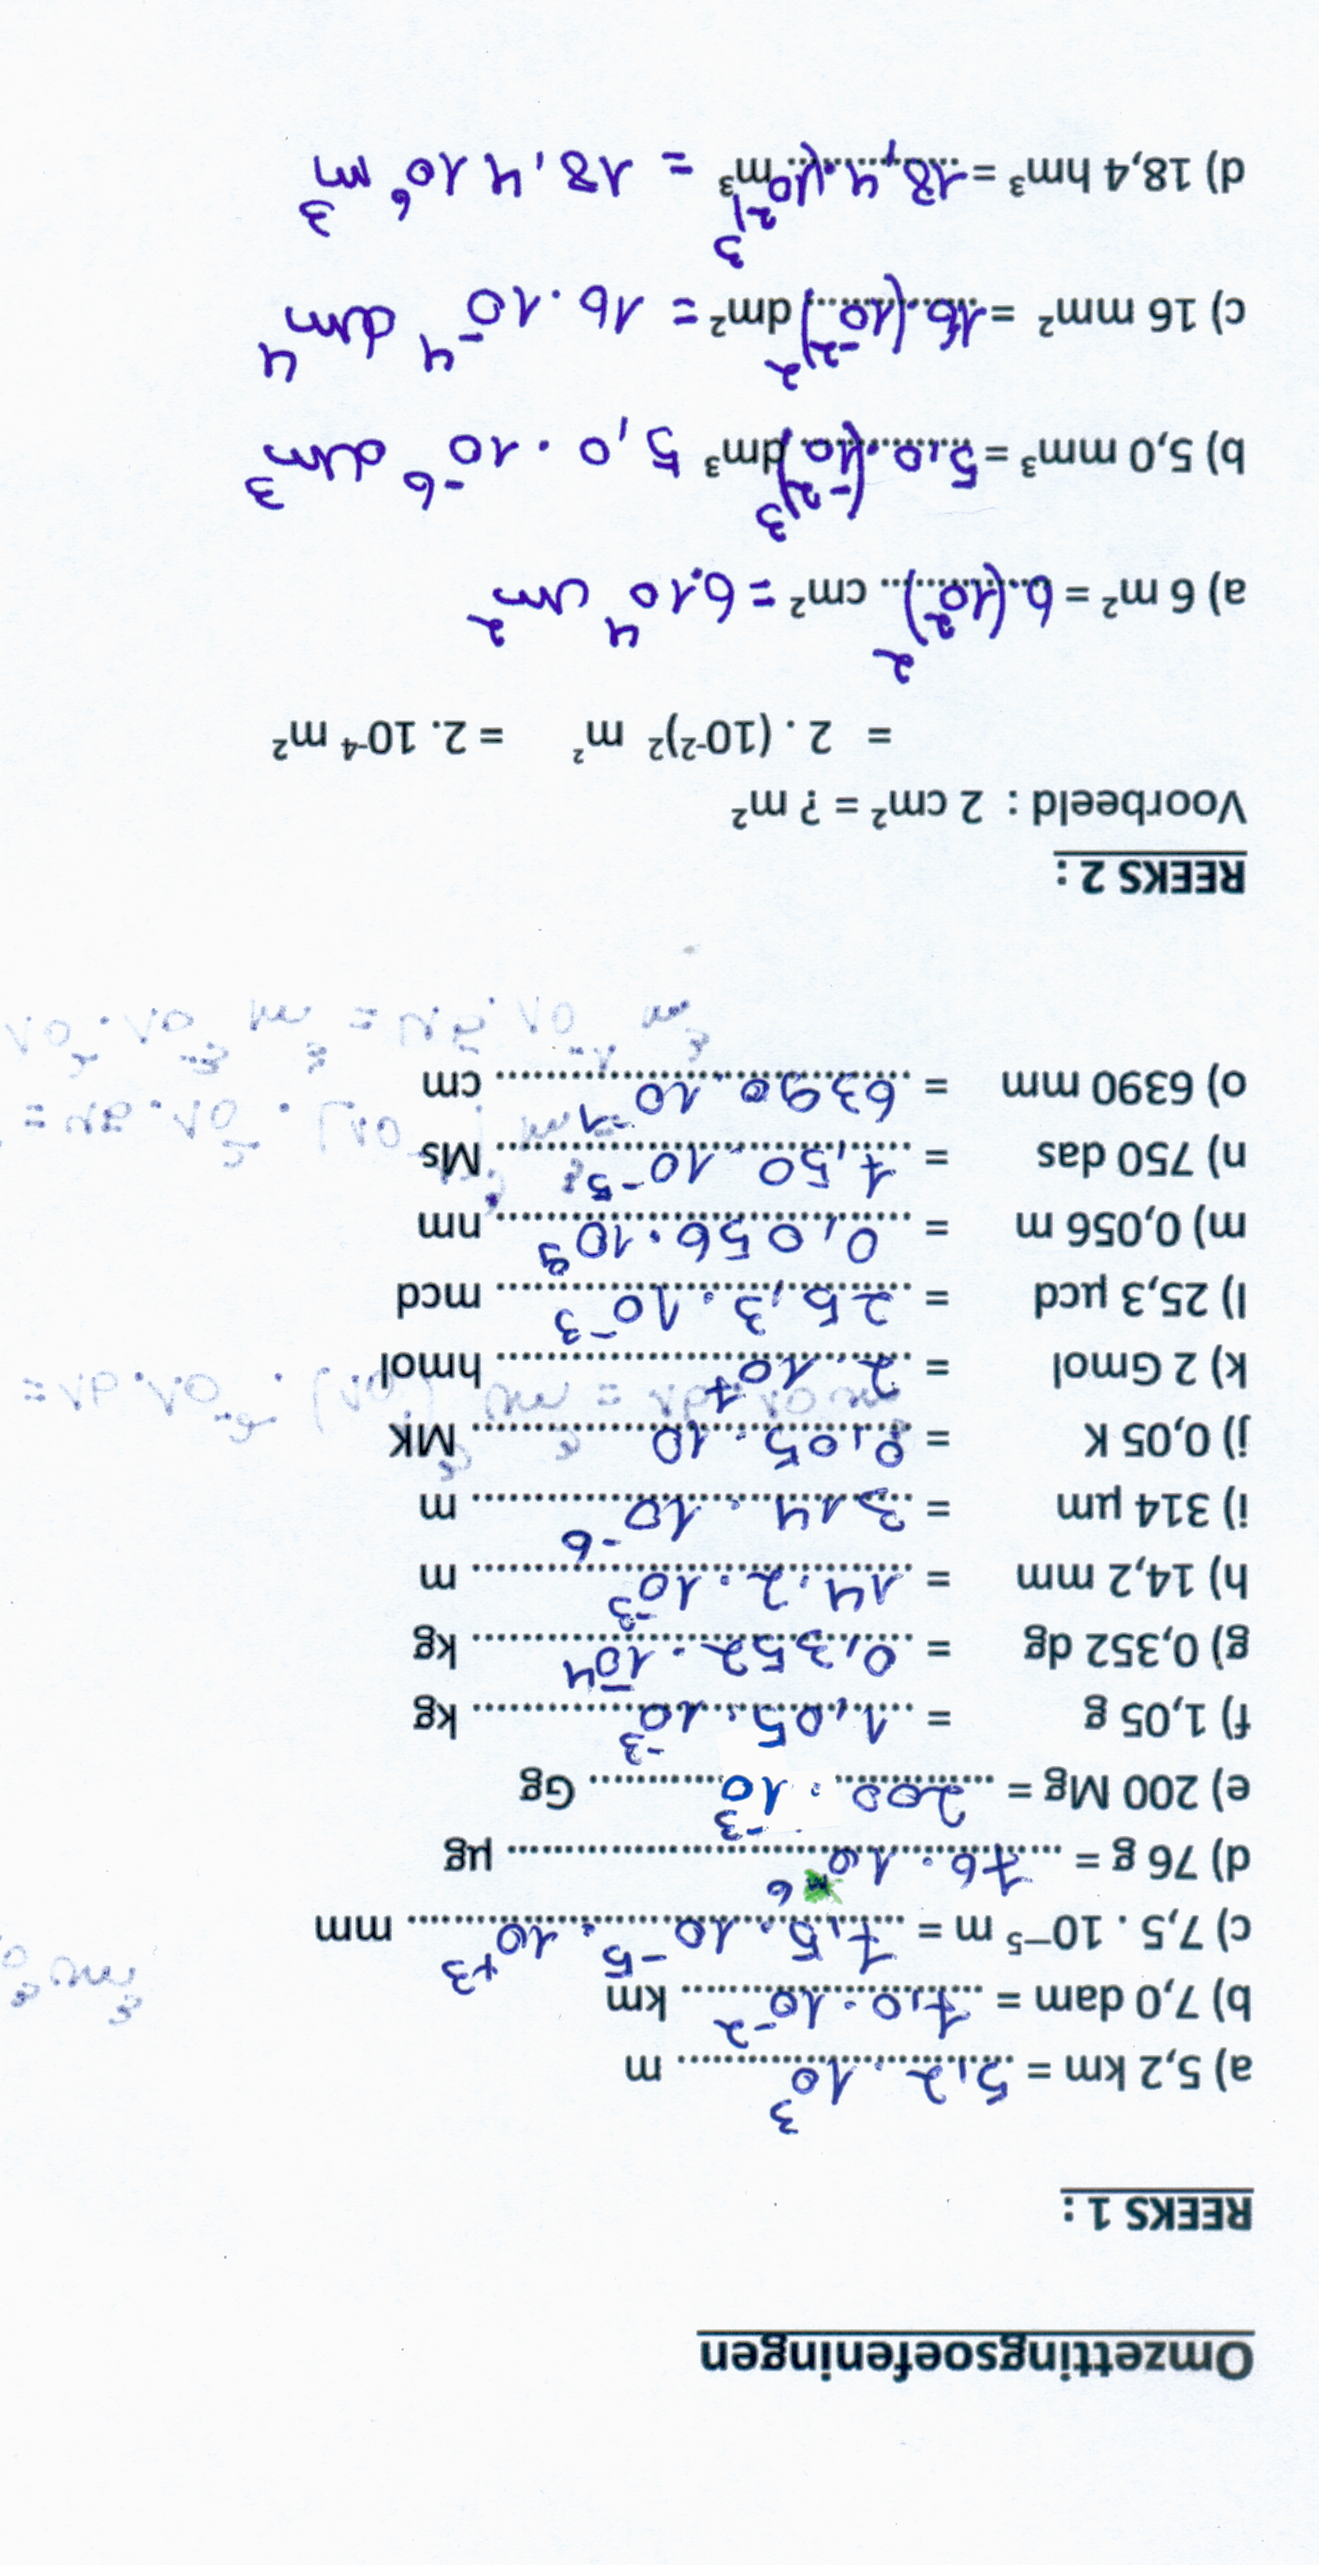 Omzettingsoefeningen
REEKS 1 :
a) 5,2 km = 5,2 . 10³ m
b) 7,0 dam = 7,0 . 10⁻² km
c) 7,5 . 10⁻⁵ m = 7,5 . 10⁻⁵ . 10⁺³ mm
d) 76 g = 76 . 10⁶ µg
e) 200 Mg = 200 . 10⁻³ Gg
f) 1,05 g = 1,05 . 10⁻³ kg
g) 0,352 dg = 0,352 . 10⁻⁴ kg
h) 14,2 mm = 14,2 . 10⁻³ m
i) 314 µm = 314 . 10⁻⁶ m
j) 0,05 K = 0,05 . 10 MK
k) 2 Gmol = 2 . 10⁷ hmol
l) 25,3 µcd = 25,3 . 10⁻³ mcd
m) 0,056 m = 0,056 . 10⁹ nm
n) 750 das = 7,50 . 10⁻⁵ Ms
o) 6390 mm = 6390 . 10⁻¹ cm
REEKS 2 :
Voorbeeld : 2 cm² = ? m²
= 2 . (10⁻²)² m² = 2. 10⁻⁴ m²
a) 6 m² = 6.(10²)² cm² = 6.10⁴ cm²
b) 5,0 mm³ = 5,0.(10⁻²)³ dm³ 5,0 . 10⁻⁶ dm³
c) 16 mm² = 16.(10⁻²)² dm² = 16 . 10⁻⁴ dm⁴
d) 18,4 hm³ = 18,4.(10²)³ m³ = 18,4 10⁶ m³